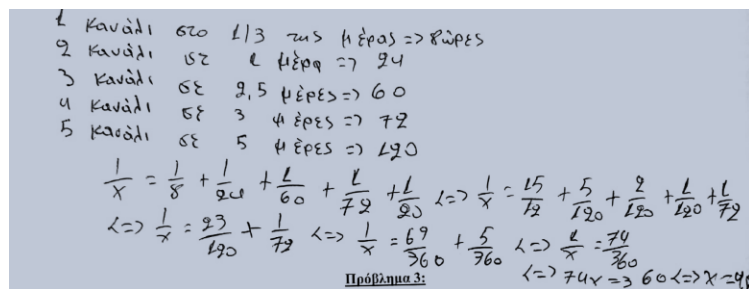 1 κανάλι στο 1/3 της μέρας => 8ώρες
2 κανάλι σε 1 μέρα => 24
3 κανάλι σε 2,5 μέρες => 60
4 κανάλι σε 3 μέρες => 72
5 κανάλι σε 5 μέρες => 120
1/x = 1/8 + 1/24 + 1/60 + 1/72 + 1/20 <=> 1/x = 15/12 + 5/120 + 2/120 + 1/120 + 1/72
<=> 1/x = 23/120 + 1/72 <=> 1/x = 69/360 + 5/360 <=> 1/x = 74/360
Πρόβλημα 3: <=> 74x = 360 <=> x =